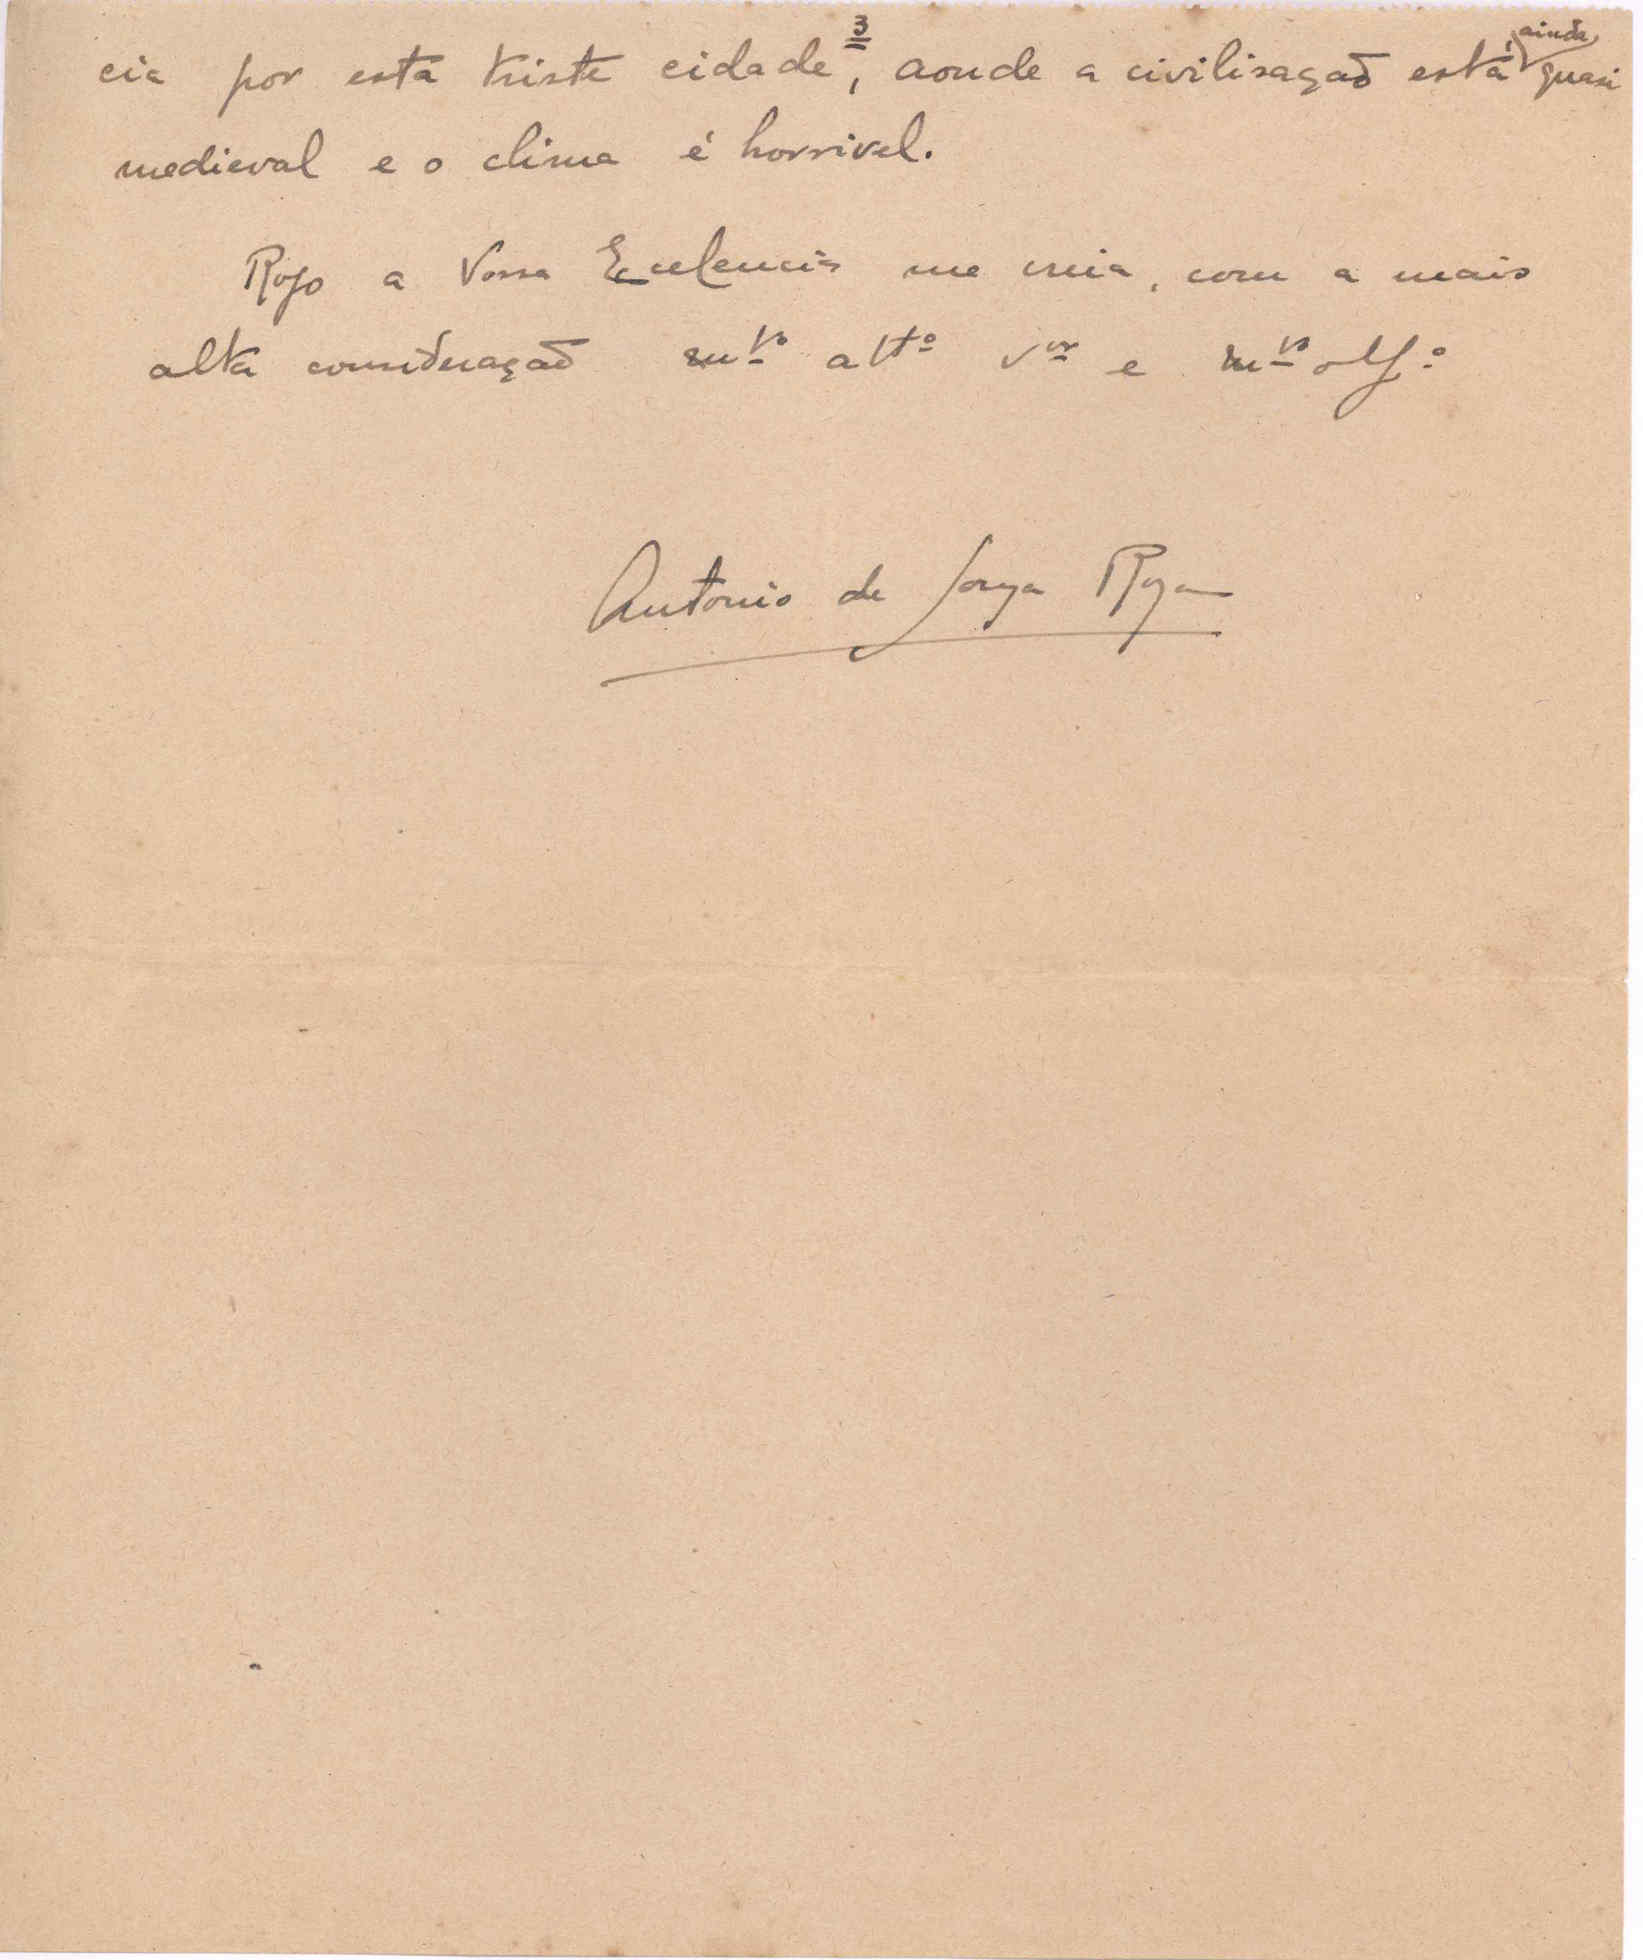 3
cia por esta triste cidade, aonde a civilisação está ainda quasi
medieval e o clima é horrivel.
Rogo a Vossa Excelencia me creia, com a mais
alta consideração mto atto vor e mto obgo
Antonio de Souza Roza